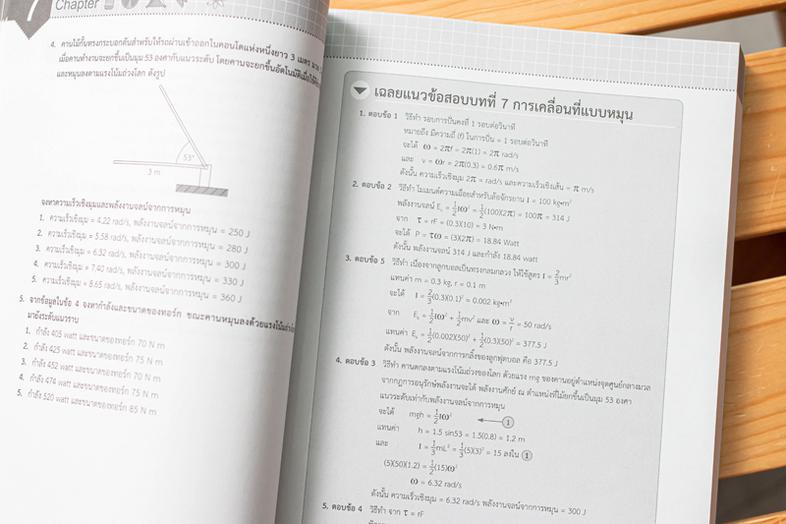 7
Chapter
4. คานไม้กั้นทรงกระบอกตันสำหรับให้รถผ่านเข้าออกในคอนโดแห่งหนึ่งยาว 3 เมตร
เมื่อคานทำงานจะยกขึ้นเป็นมุม 53 องศากับแนวระดับ โดยคานจะยกขึ้นอัตโนมัติ
และหมุนลงตามแรงโน้มถ่วงโลก ดังรูป
53°
3 m
จงหาความเร็วเชิงมุมและพลังงานจลน์จากการหมุน
1. ความเร็วเชิงมุม = 4.22 rad/s, พลังงานจลน์จากการหมุน = 250 J
2. ความเร็วเชิงมุม = 5.58 rad/s, พลังงานจลน์จากการหมุน = 280 J
3. ความเร็วเชิงมุม = 6.32 rad/s, พลังงานจลน์จากการหมุน = 300 J
4. ความเร็วเชิงมุม = 7.40 rad/s, พลังงานจลน์จากการหมุน = 330 J
5. ความเร็วเชิงมุม = 8.65 rad/s, พลังงานจลน์จากการหมุน = 360 J
5. จากข้อมูลในข้อ 4 จงหากำลังและขนาดของทอร์ก ขณะคานหมุนลงด้วยแรงโน้มถ่วง
มายังระดับแนวราบ
1. กำลัง 405 watt และขนาดของทอร์ก 70 N m
2. กำลัง 425 watt และขนาดของทอร์ก 75 N m
3. กำลัง 452 watt และขนาดของทอร์ก 70 N m
4. กำลัง 474 watt และขนาดของทอร์ก 75 N m
5. กำลัง 520 watt และขนาดของทอร์ก 85 N m
เฉลยแนวข้อสอบบทที่ 7 การเคลื่อนที่แบบหมุน
1. ตอบข้อ 1 วิธีทำ รอบการปั่นคงที่ 1 รอบต่อวินาที
หมายถึง มีความถี่ (f) ในการปั่น = 1 รอบต่อวินาที
จะได้ ω = 2πf = 2π(1) = 2π rad/s
และ v = ωr = 2π(0.3) = 0.6π m/s
ดังนั้น ความเร็วเชิงมุม 2π = rad/s และความเร็วเชิงเส้น = π m/s
2. ตอบข้อ 2 วิธีทำ โมเมนต์ความเฉื่อยสำหรับล้อจักรยาน I = 100 kg•m²
พลังงานจลน์ Eₖ = ½Iω² = ½(100)(2π) = 100π = 314 J
จาก τ = rF = (0.3)(10) = 3 N•m
จะได้ P = τω = (3)(2π) = 18.84 Watt
ดังนั้น พลังงานจลน์ 314 J และกำลัง 18.84 watt
3. ตอบข้อ 5 วิธีทำ เนื่องจากลูกบอลเป็นทรงกลมกลวง ให้ใช้สูตร I = ⅔mr²
แทนค่า m = 0.3 kg, r = 0.1 m
จะได้ I = ⅔(0.3)(0.1)² = 0.002 kg•m²
จาก Eₖ = ½Iω² + ½mv² และ ω = v/r = 50 rad/s
แทนค่า Eₖ = ½(0.002)(50)² + ½(0.3)(50)² = 377.5 J
ดังนั้น พลังงานจลน์จากการกลิ้งของลูกฟุตบอล คือ 377.5 J
4. ตอบข้อ 3 วิธีทำ คานตกลงตามแรงโน้มถ่วงของโลก ด้วยแรง mg ของคานอยู่ตำแหน่งจุดศูนย์กลางมวล
จากกฎการอนุรักษ์พลังงานจะได้ พลังงานศักย์ ณ ตำแหน่งที่ไม้ยกขึ้นเป็นมุม 53 องศา
แนวระดับเท่ากับพลังงานจลน์จากการหมุน
จะได้ mgh = ½Iω² 1
แทนค่า h = 1.5 sin53 = 1.5(0.8) = 1.2 m
และ I = ⅓mL² = ⅓(5)(3)² = 15 ลงใน 1
(5)(50)(1.2) = ½(15)ω²
ω = 6.32 rad/s
ดังนั้น ความเร็วเชิงมุม = 6.32 rad/s พลังงานจลน์จากการหมุน = 300 J
5. ตอบข้อ 4 วิธีทำ จาก τ = rF